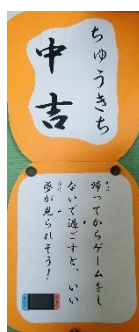 ちゅうきち
中吉
帰ってからゲームをし
ないで過ごすと、いい
夢が見られそう！